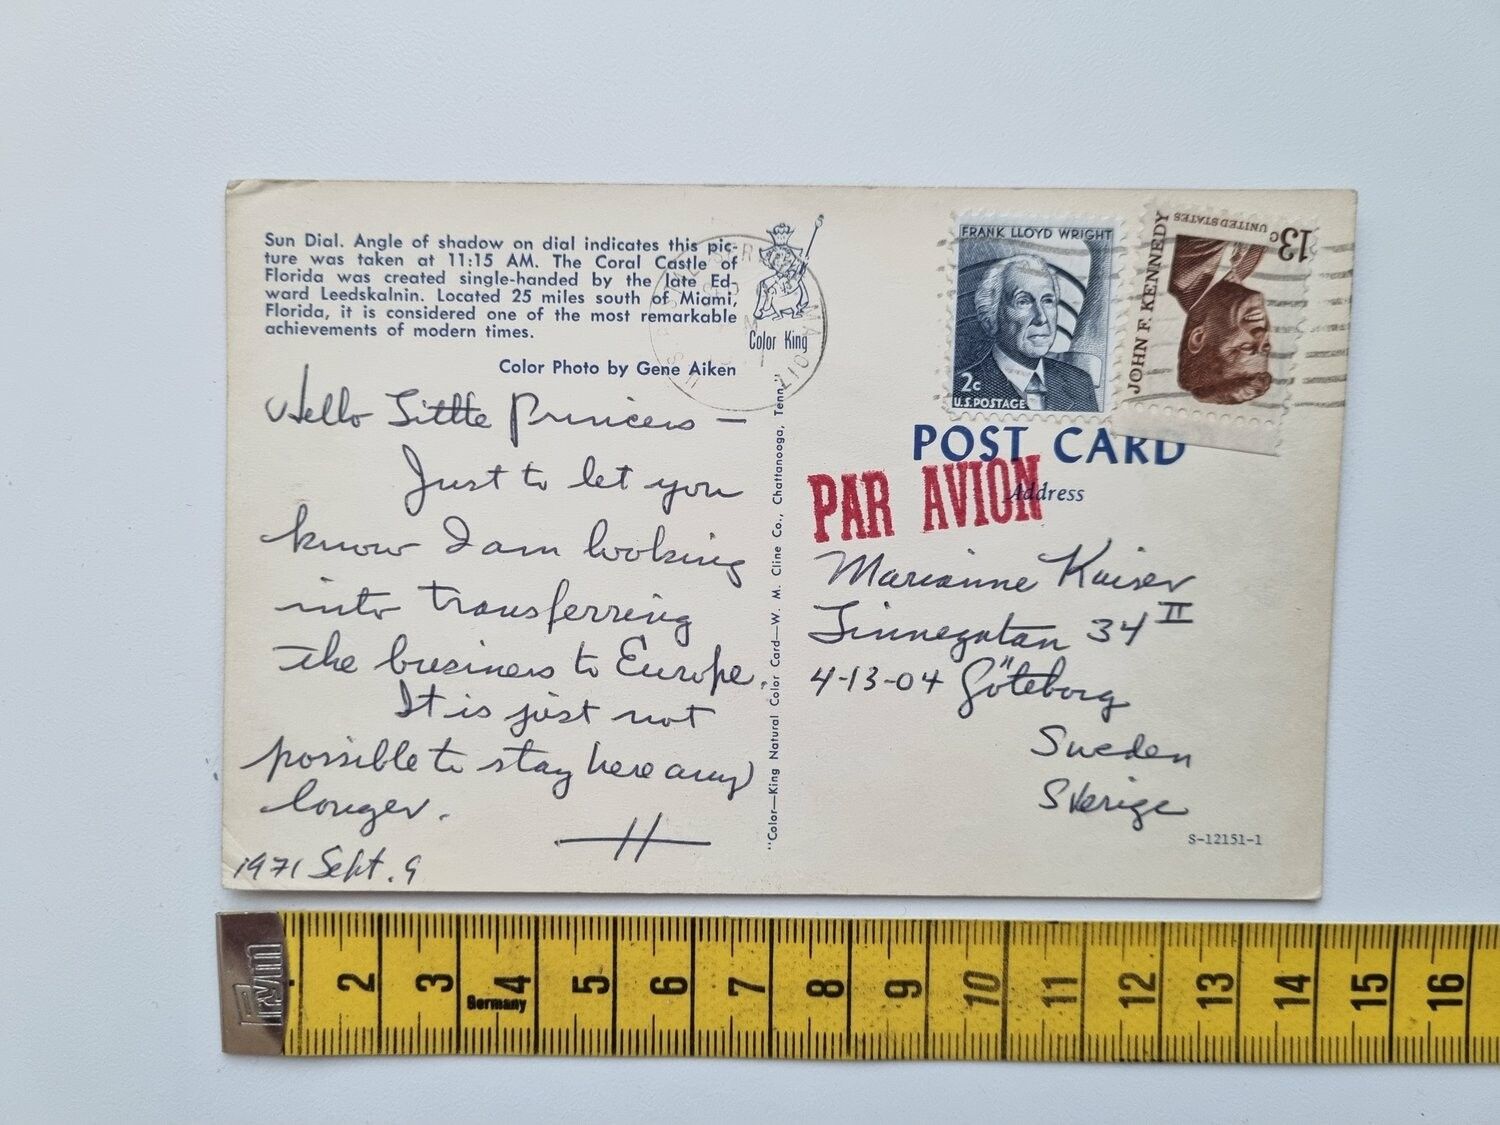 Sun Dial. Angle of shadow on dial indicates this pic-
ture was taken at 11:15 AM. The Coral Castle of
Florida was created single-handed by the late Ed-
ward Leedskalnin. Located 25 miles south of Miami,
Florida, it is considered one of the most remarkable
achievements of modern times.
Color Photo by Gene Aiken
Color King
Hello Little Princess —
Just to let you
know I am looking
into transferring
the business to Europe.
It is just not
possible to stay here any
longer.
H
1971 Sept. 9
"Color—King Natural Color Card—W. M. Cline Co., Chattanooga, Tenn."
FRANK LLOYD WRIGHT
2c
U.S. POSTAGE
JOHN F. KENNEDY
UNITED STATES
13c
POST CARD
Address
PAR AVION
Marianne Kaiser
Linnegatan 34 II
4-13-04 Göteborg
Sweden
Sverige
S-12151-1
Prym
2 3 4 5 6 7 8 9 10 11 12 13 14 15 16
Germany